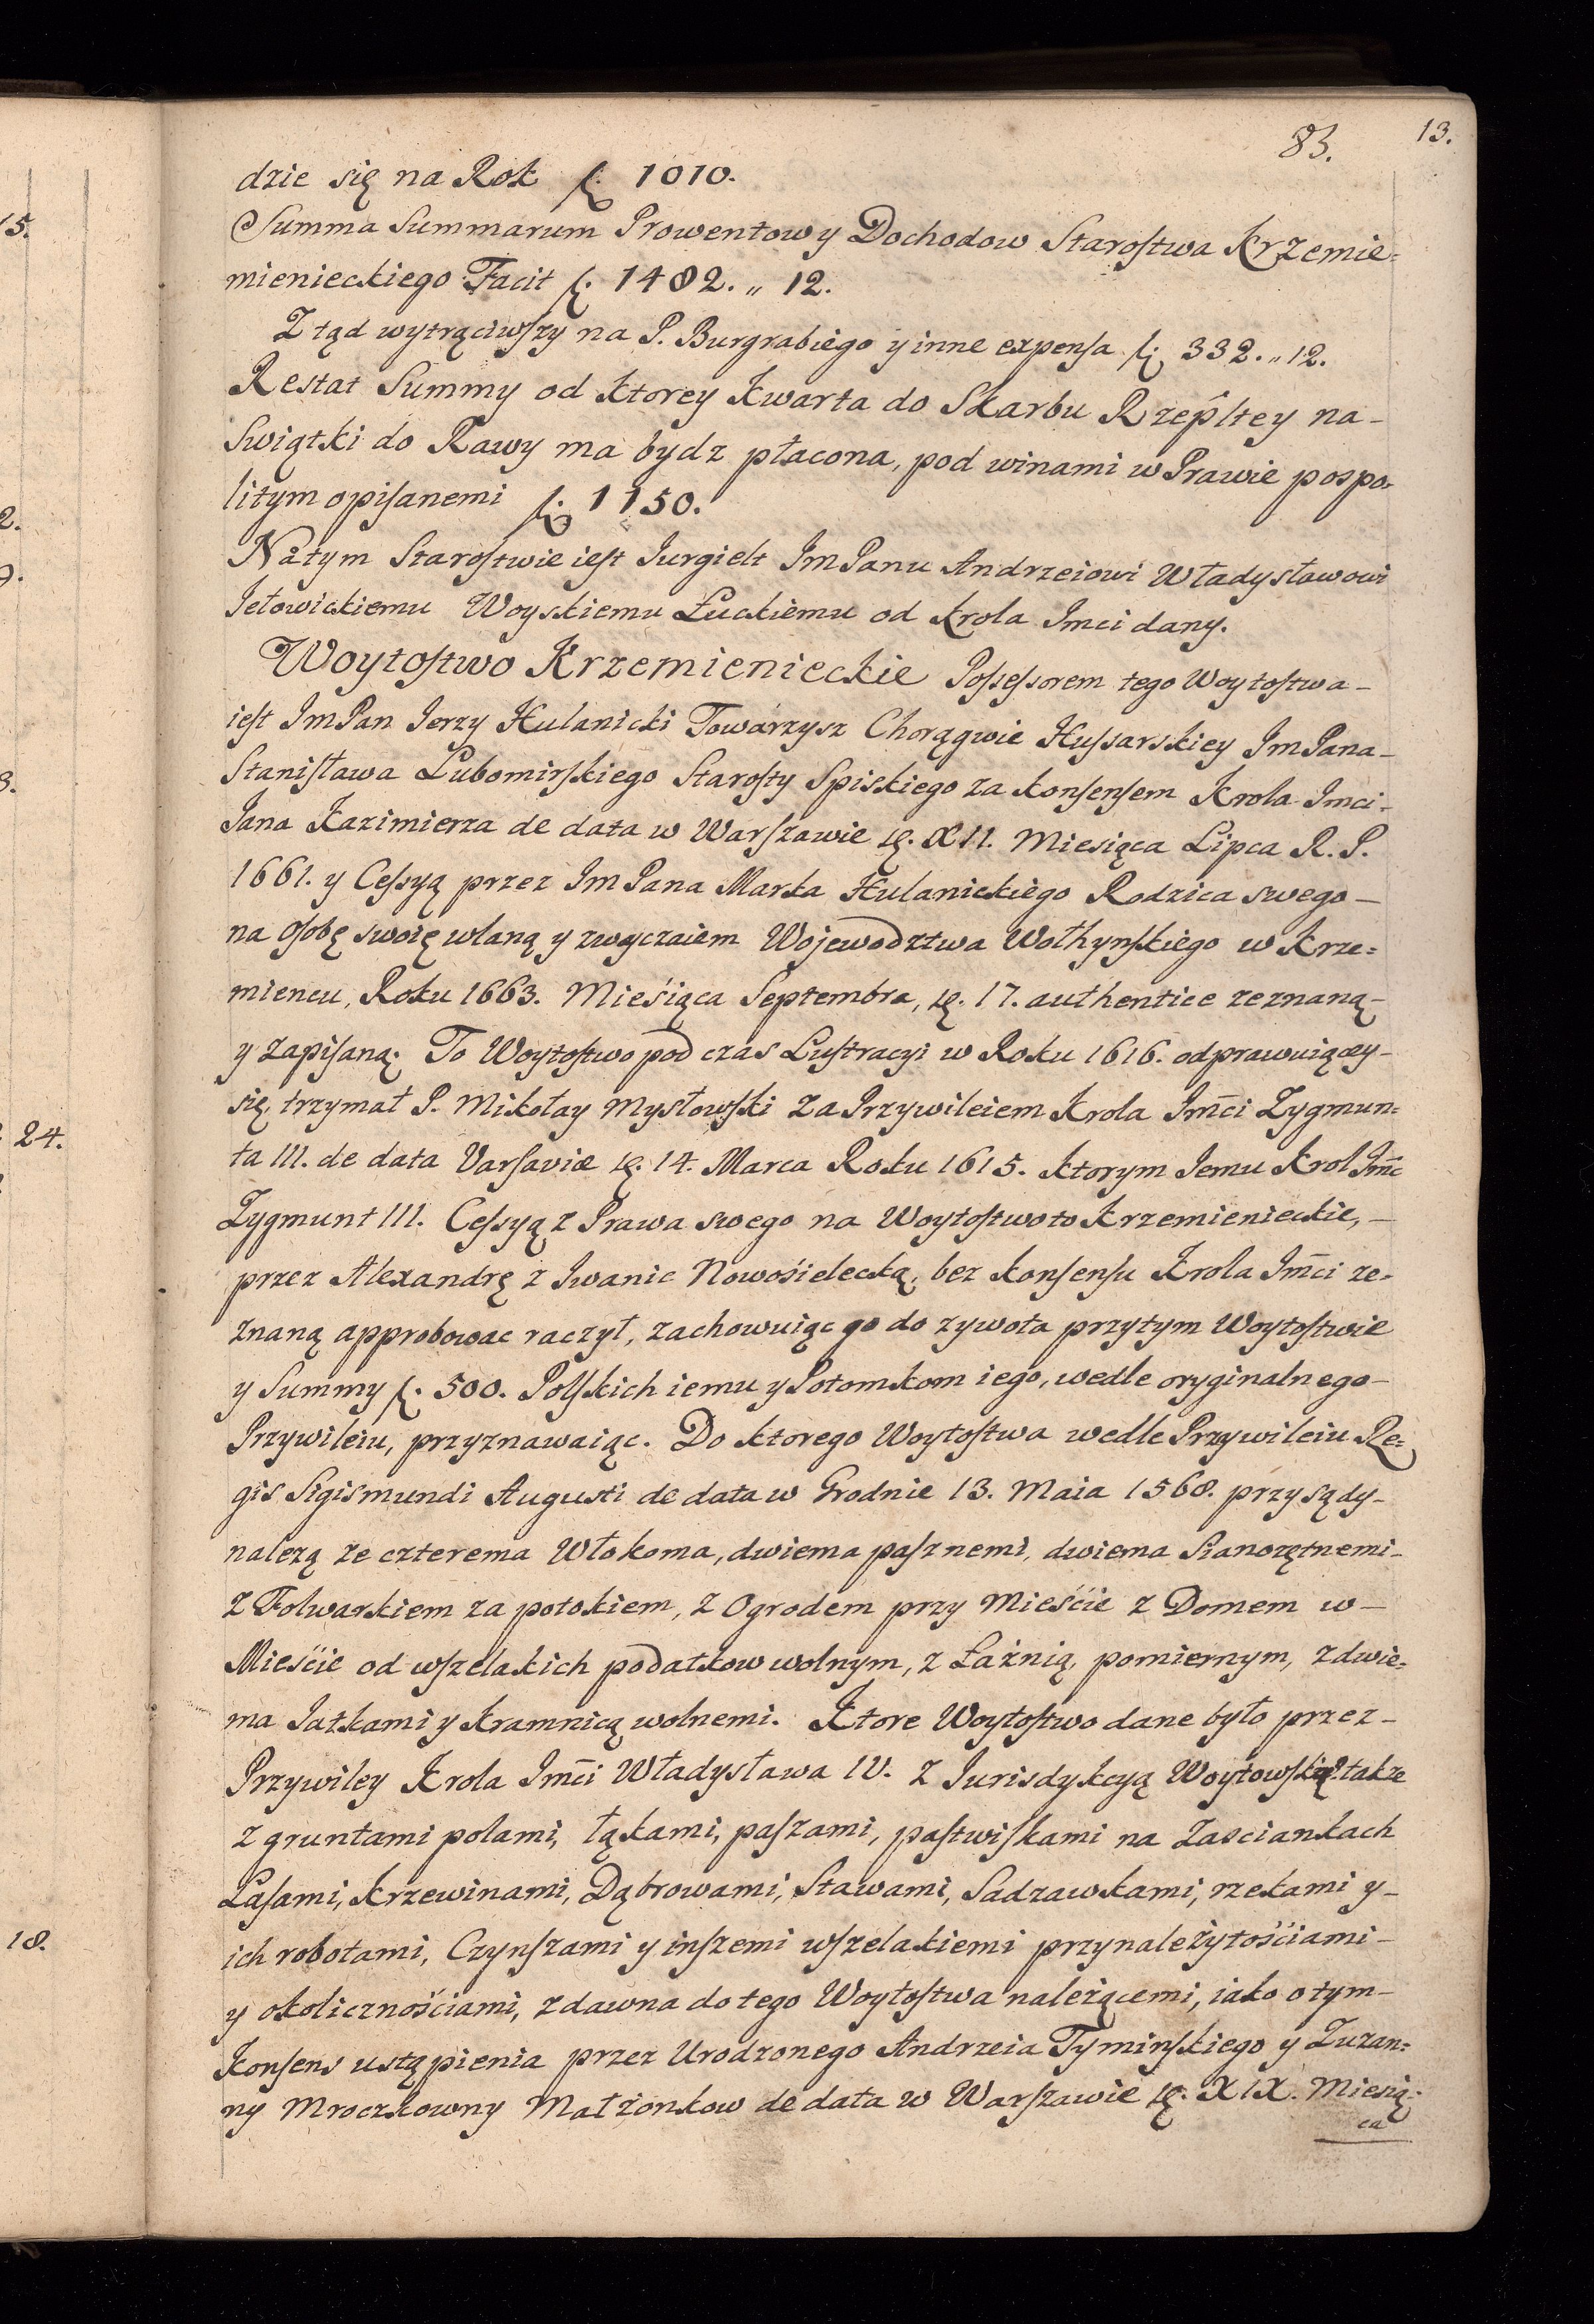 83.
13.
dzie się na Rok f. 1010.
Summa Summarum Prowentow y Dochodow Starostwa Krzemie=
mienieckiego Facit f. 1482. „ 12.
Z tąd wytrąciwszy na P. Burgrabiego y inne expensa f. 332. „ 12.
Restat Summy od Ktorey Kwarta do Skarbu Rzepltey na-
Swiątki do Rawy ma bydz płacona, pod winami w Prawie pospo-
litym opisanemi f. 1150.
Na tym Starostwie iest Iurgielt Im Panu Andrzeiowi Władysławowi
Jełowickiemu Woyskiemu Łuckiemu od Krola Imci dany.
Woytostwo Krzemienieckie Possessorem tego Woytostwa –
iest Im Pan Jerzy Hulanicki Towarzysz Chorągwie Hussarskiey Im Pana –
Stanisława Lubomirskiego Starosty Spiskiego za konsensem Krola Imci-
Jana Kazimierza de data w Warszawie D. XII. Miesiąca Lipca R. P.
1661. y Cessyą przez Im Pana Marka Hulanickiego Rodzica swego –
na osobę swoię wlaną y zwyczaiem Wojewodztwa Wołhynskiego w Krze=
miencu, Roku 1663. Mieśiąca Septembra, D. 17. authentice zeznaną –
y zapisaną. To Woytostwo pod czas Lustracyi w Roku 1616. odprawuiącey –
się, trzymał P. Mikołay Mysłowski za Przywileiem Krola Imci Zygmun=
ta III. de data Varsaviæ D. 14. Marca Roku 1615. Ktorym Jemu Krol Imc
Zygmunt III. Cessyą z Prawa swego na Woytostwo to Krzemienieckie, –
przez Alexandrę z Iwanic Nowośielecką, bez konsensu Krola Imci ze-
znaną approbowac raczył, zachowuiąc go do zywota przytym Woytostwie
y Summy f. 500. Polskich iemu y Potomkom iego, wedle oryginalnego –
Przywileiu, przyznawaiąc. Do ktorego Woytostwa wedle Przywileiu Re=
gis Sigismundi Augusti de data w Grodnie 13. Maia 1568. przysądy –
nalezą ze czterema Włokoma, dwiema pasznemi, dwiema Sianozętnemi –
z Folwarkiem za potokiem, z Ogrodem przy Mieśćie z Domem w –
Mieśćie od wszelakich podatkow wolnym, z Łaźnią, pomiernym, z dwie=
ma Jatkami y Kramnicą wolnemi. Ktore Woytostwo dane było przez –
Przywiley Krola Imci Władysława IV. z Jurisdykcyą Woytowską także
z gruntami polami, łąkami, paszami, pastwiskami na Zasciankach
Lasami, Krzewinami, Dąbrowami, Stawami, Sadzawkami, rzekami y –
ich robotami, Czynszami y inszemi wszelakiemi przynależytośćiami –
y okolicznośćiami, zdawna do tego Woytostwa należącemi, iako o tym –
Konsens ustąpienia przez Urodzonego Andrzeia Tyminskiego y Zuzan=
ny Mroczkowny Małżonkow de data w Warszawie D. XIX. Miesią=
ca
15.
2.
9.
3.
24.
18.